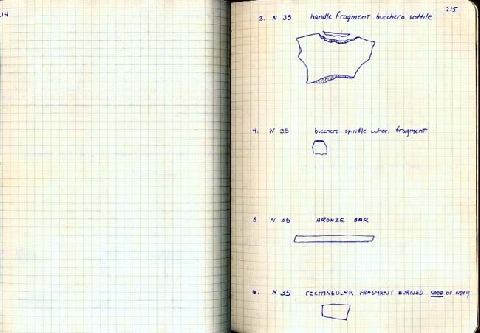 14
215
3. N 35 handle fragment bucchero sottile
4. N 35 bucchero spindle whorl fragment
5 N 35 BRONZE BAR
6. N 35 RECTANGULAR FRAGMENT BURNED WOOD OR IVORY